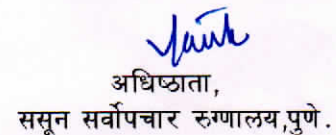 अधिष्ठाता,
ससून सर्वोपचार रुग्णालय,पुणे.